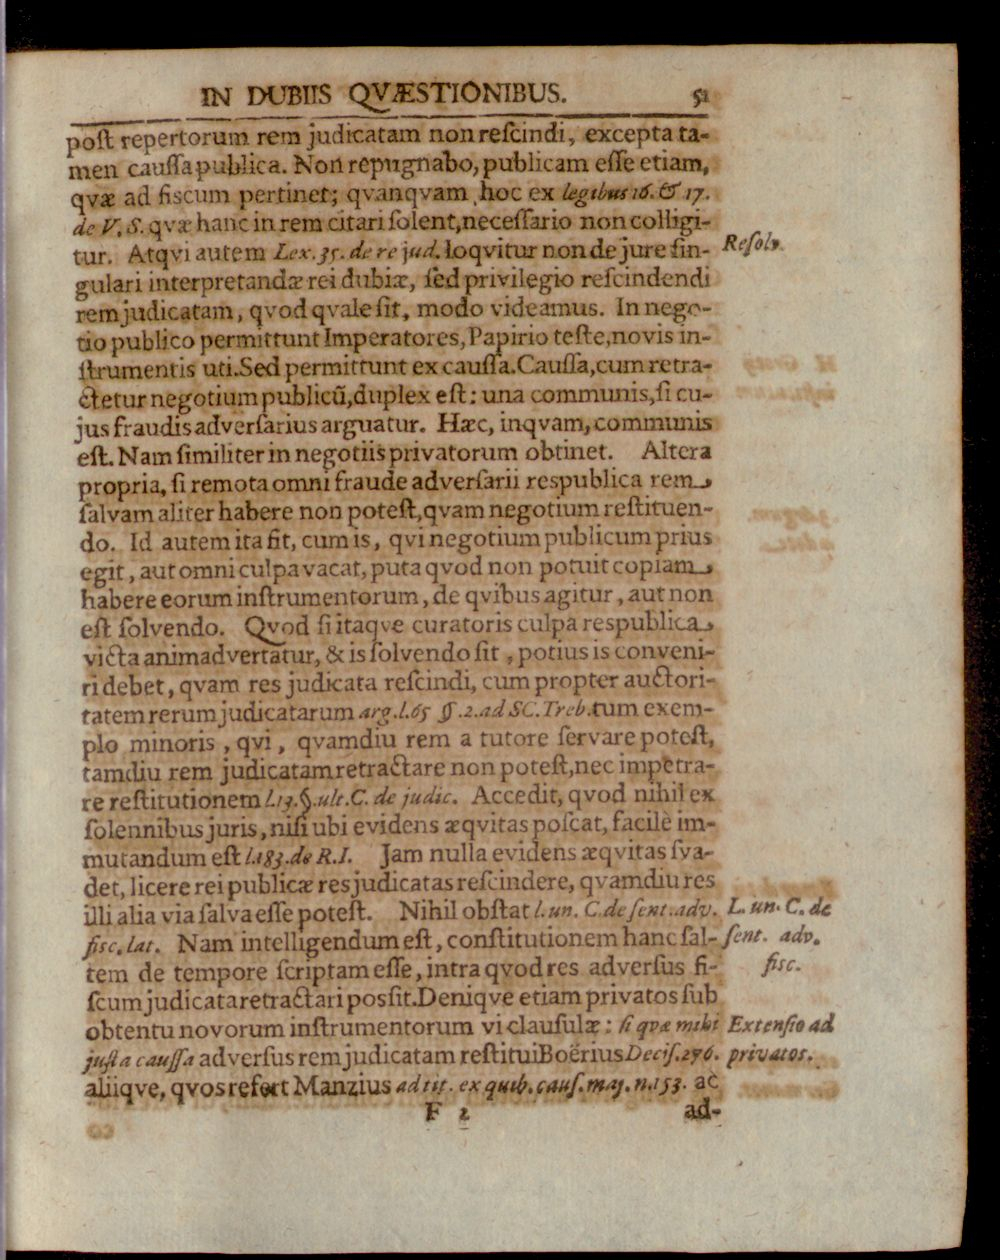 IN DUBIIS QVÆSTIONIBUS. 51
poſt repertorum rem judicatam non reſcindi, excepta ta-
men cauſſa publica. Non repugnabo, publicam eſſe etiam,
qvæ ad fiscum pertinet; qvanqvam hoc ex legibus 16. & 17.
de V. S. qvæ hanc in rem citari ſolent, neceſſario non colligi-
tur. Atqvi autem Lex. 35. de re jud. loqvitur non de jure ſin- Reſolv.
gulari interpretandæ rei dubiæ, ſed privilegio reſcindendi
rem judicatam, qvod qvale ſit, modo videamus. In nego-
tio publico permittunt Imperatores, Papirio teſte, novis in-
ſtrumentis uti. Sed permittunt ex cauſſa. Cauſſa, cum retra-
ctetur negotium publicũ, duplex eſt: una communis, ſi cu-
jus fraudis adverſarius arguatur. Hæc, inqvam, communis
eſt. Nam ſimiliter in negotiis privatorum obtinet. Altera
propria, ſi remota omni fraude adverſarii respublica rem
ſalvam aliter habere non poteſt, qvam negotium reſtituen-
do. Id autem ita fit, cum is, qvi negotium publicum prius
egit, aut omni culpa vacat, puta qvod non potuit copiam
habere eorum inſtrumentorum, de qvibus agitur, aut non
eſt ſolvendo. Qvod ſi itaqve curatoris culpa respublica
victa animadvertatur, & is ſolvendo ſit, potius is conveni-
ri debet, qvam res judicata reſcindi, cum propter auctori-
tatem rerum judicatarum arg. l. 65 §. 2. ad SC. Treb. tum exem-
plo minoris, qvi, qvamdiu rem a tutore ſervare poteſt,
tamdiu rem judicatam retractare non poteſt, nec impetra-
re reſtitutionem l. 13. §. ult. C. de judic. Accedit, qvod nihil ex
ſolennibus juris, niſi ubi evidens æqvitas poſcat, facilè im-
mutandum eſt l. 183. de R. I. Jam nulla evidens æqvitas ſva-
det, licere rei publicæ res judicatas reſcindere, qvamdiu res
illi alia via ſalva eſſe poteſt. Nihil obſtat l. un. C. de ſent. adv. L. un. C. de
fisc. lat. Nam intelligendum eſt, conſtitutionem hanc ſal- ſent. adv.
tem de tempore ſcriptam eſſe, intra qvod res adverſus fi- fisc.
ſcum judicata retractari possit. Deniqve etiam privatos ſub
obtentu novorum inſtrumentorum vi clauſulæ: ſi qvæ mihi Extenſio ad
juſta cauſſa adverſus rem judicatam reſtitui Boërius Deciſ. 276. privatos.
aliiqve, qvos refert Manzius ad tit. ex quib. cauſ. maj. n. 153. ac
F 2 ad-